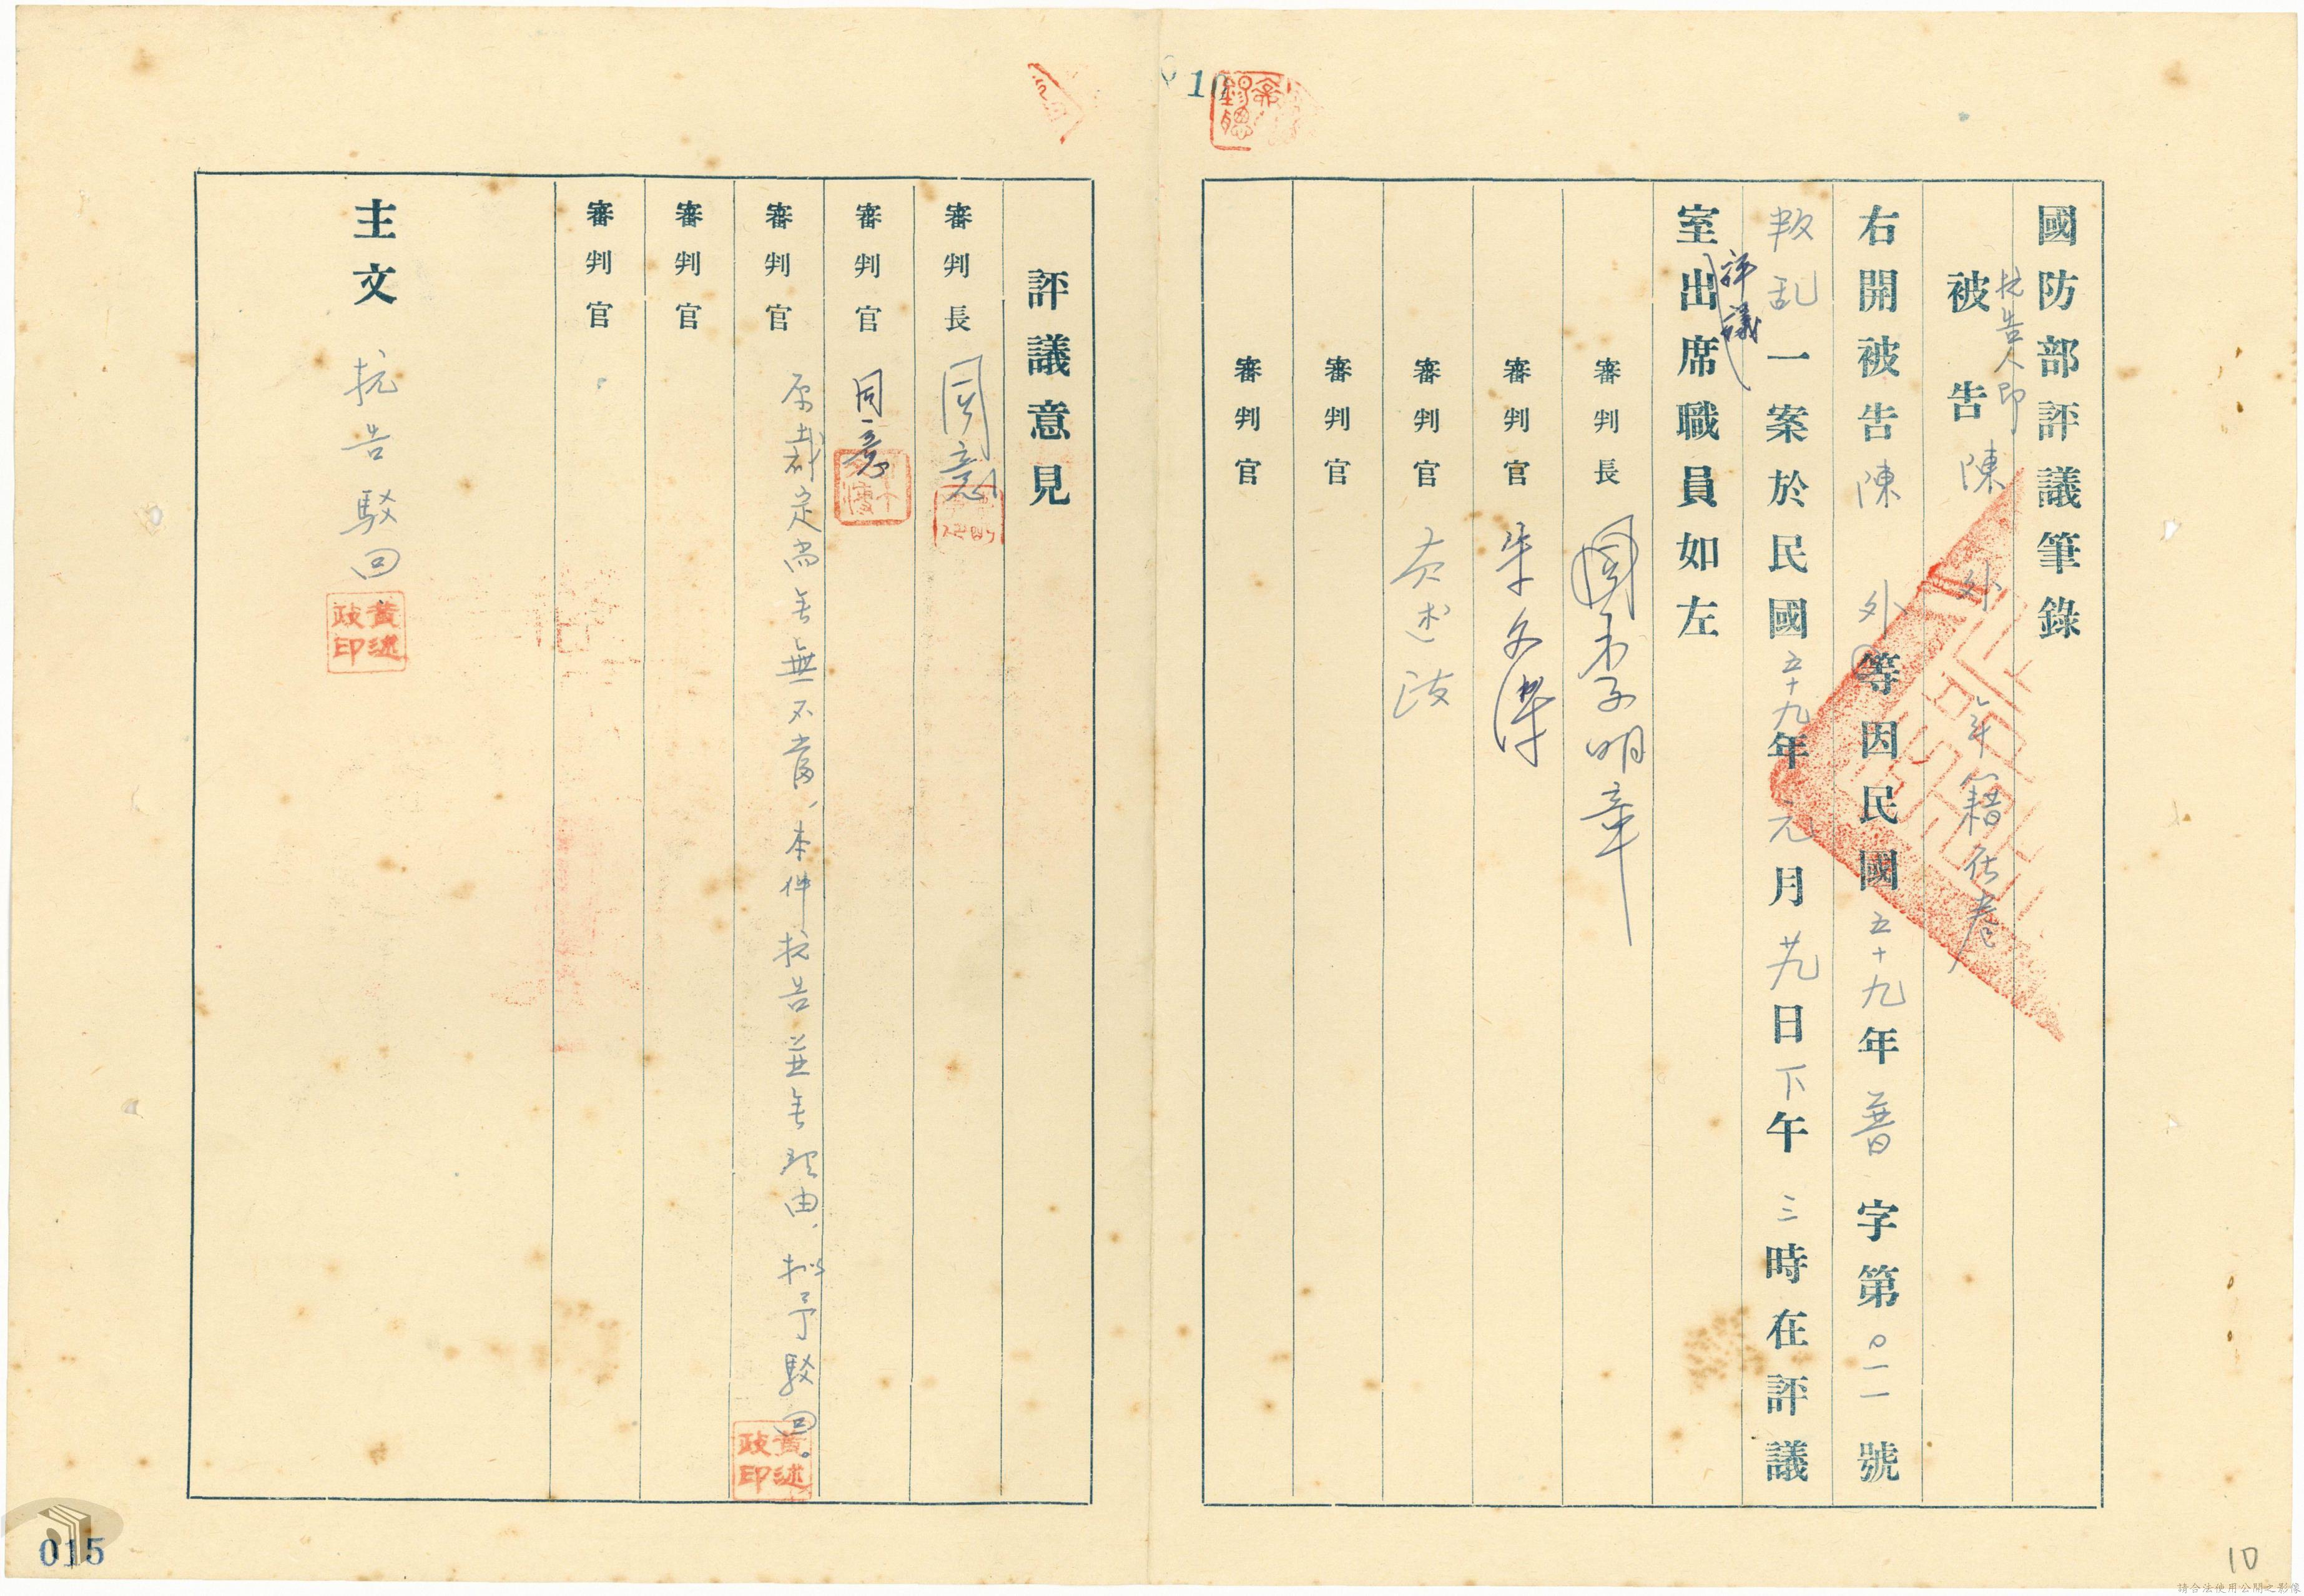 國防部評議筆錄
抗告人即
被告 陳 外 年籍在卷
右開被告陳 外等因民國五十九年普字第〇一一號
叛乱一案於民國五十九年元月廿九日下午三時在評議
評議
室出席職員如左
審判長
審判官
審判官 黃述政
審判官
審判官
評議意見
審判長 同意
審判官 同意
審判官 原裁定尚無不當、本件抗告並無理由、擬予駁回。
黃述政印
審判官
審判官
主文 抗告駁回
黃述政印
10
015
10
請合法使用公開之影像